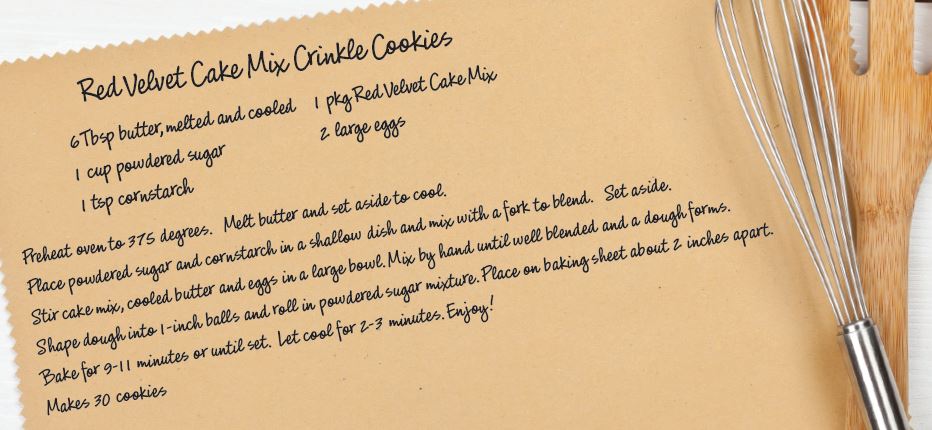 Red Velvet Cake Mix Crinkle Cookies
6 Tbsp butter, melted and cooled
1 cup powdered sugar
1 tsp cornstarch
1 pkg Red Velvet Cake Mix
2 large eggs
Preheat oven to 375 degrees. Melt butter and set aside to cool.
Place powdered sugar and cornstarch in a shallow dish and mix with a fork to blend. Set aside.
Stir cake mix, cooled butter and eggs in a large bowl. Mix by hand until well blended and a dough forms.
Shape dough into 1-inch balls and roll in powdered sugar mixture. Place on baking sheet about 2 inches apart.
Bake for 9-11 minutes or until set. Let cool for 2-3 minutes. Enjoy!
Makes 30 cookies